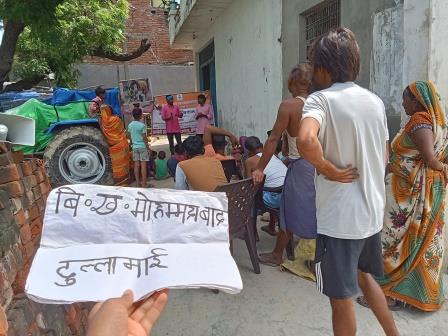 बि॰ख॰ मोहम्मदाबाद
टुल्लामाई